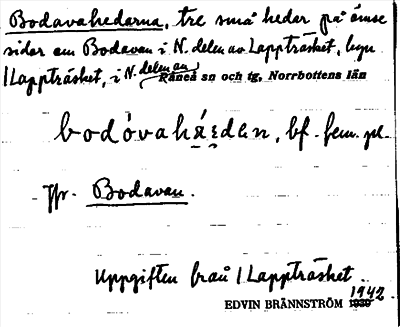 Bodavahedarna, tre små hedar på ömse
sidor om Bodavan i N. delen av Lappträsket, byn
1 Lappträsket, i N. delen av
Råneå sn och tg, Norrbottens län
bodóvahä́edan, bf. fem. pl.
Jfr. Bodavan.
Uppgiften från 1 Lappträsket
1942
EDVIN BRÄNNSTRÖM 1939